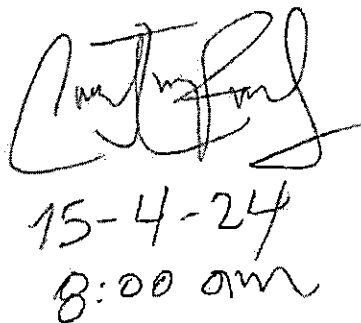 15-4-24
8:00 am